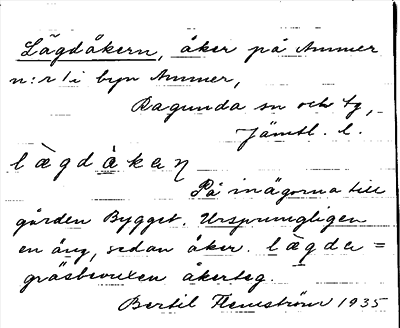 Lägdåkern, åker på Ammer
n:r 1 i byn Ammer,
Ragunda sn och tg,
Jämtl. l.
lægdåkeɳ
På inägorna till
gården Bygget. Ursprungligen
en äng, sedan åker. lægda =
gräsbevuxen åkerteg.
Bertil Flemström 1935